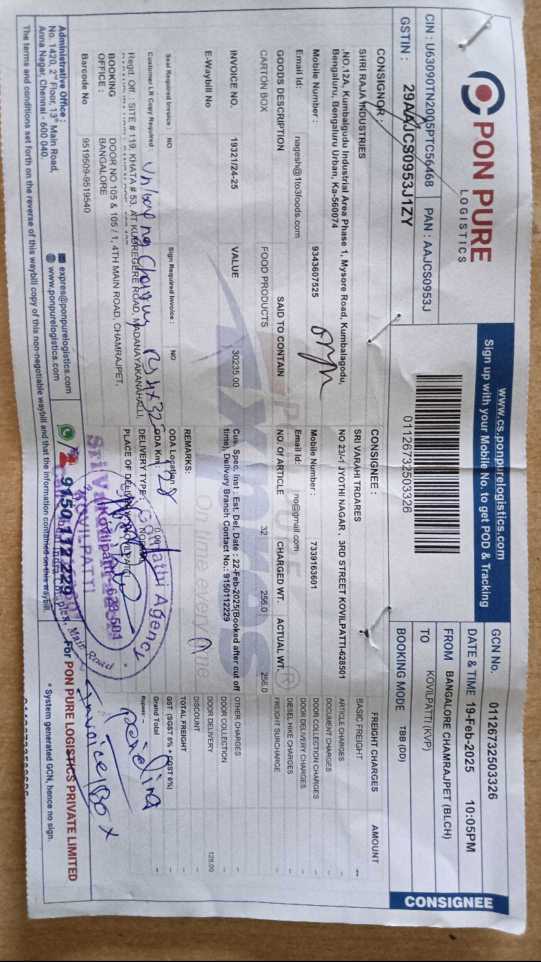 PON PURE
LOGISTICS
www.cs.ponpurelogistics.com
Sign up with your Mobile No. to get POD & Tracking
CIN : U63090TN2005PTC56468 PAN : AAJCS0953J
GSTIN : 29AAJCS0953J1ZY
01126732503326
GCN No. 01126732503326
DATE & TIME 19-Feb-2025 10:05PM
FROM BANGALORE CHAMRAJPET (BLCH)
TO KOVILPATTI(KVP)
BOOKING MODE TBB (DD)
CONSIGNEE
CONSIGNOR:
SHRI RAJA INDUSTRIES
,NO.12A, Kumbalgudu Industrial Area Phase 1, Mysore Road, Kumbalagodu,
Bengaluru, Bengaluru Urban, Ka-560074
Mobile Number : 9343607525
Email Id: nagesh@1to3foods.com
CONSIGNEE :
SRI VARAHI TRDARES
NO 23/1 JYOTHI NAGAR , 3RD STREET KOVILPATTI-628501
Mobile Number : 7339163601
Email Id: no@gmail.com
GOODS DESCRIPTION SAID TO CONTAIN NO. OF ARTICLE CHARGED WT. ACTUAL WT.
CARTON BOX FOOD PRODUCTS 32 256.0 256.0
INVOICE NO. 19321/24-25 VALUE 30235.00
Cus. Spec. Inst : Est. Del. Date : 22-Feb-2025(Booked after cut off
time), Delivury Branch Contact No.: 9150112229
E-Waybill No
REMARKS:
Seal Required Invoice NO Sign Required Invoice : NO
ODA Location
Customer LR Copy Required
ODA Km
Unloading Charges Rs 4x32
128
Regd. Off. : SITE # 119, KHATA # 53, AT KUDREGERE ROAD, MADANAYAKANAHALLI,
DELIVERY TYPE
BOOKING OFFICE : DOOR NO 105 & 105 / 1, 4TH MAIN ROAD, CHAMRAJPET, BANGALORE
PLACE OF DELIVERY
Barcode No 9519509-9519540
FREIGHT CHARGES AMOUNT
BASIC FREIGHT --
ARTICLE CHARGES
DOCUMENT CHARGES
DOOR COLLECTION CHARGES
DOOR DELIVERY CHARGES
DIESEL HIKE CHARGES
FREIGHT SURCHARGE
OTHER CHARGES
DOOR COLLECTION
DOOR DELIVERY 128.00
DISCOUNT
TOTAL FREIGHT
Grand Total
Rupees --
Agency
Kovilpatti - 628 501
KOVILPATTI
Main Road
pending
Invoice
Box
Administrative Office :
No. 1420, 2nd Floor, 13th Main Road,
Anna Nagar, Chennai - 600 040
expres@ponpurelogistics.com
www.ponpurelogistics.com
9150112229
For PON PURE LOGISTICS PRIVATE LIMITED
The terms and conditions set forth on the reverse of this waybill copy of this non-negotiable waybill and that the information contained on this waybill.
* System generated GCN, hence no sign.